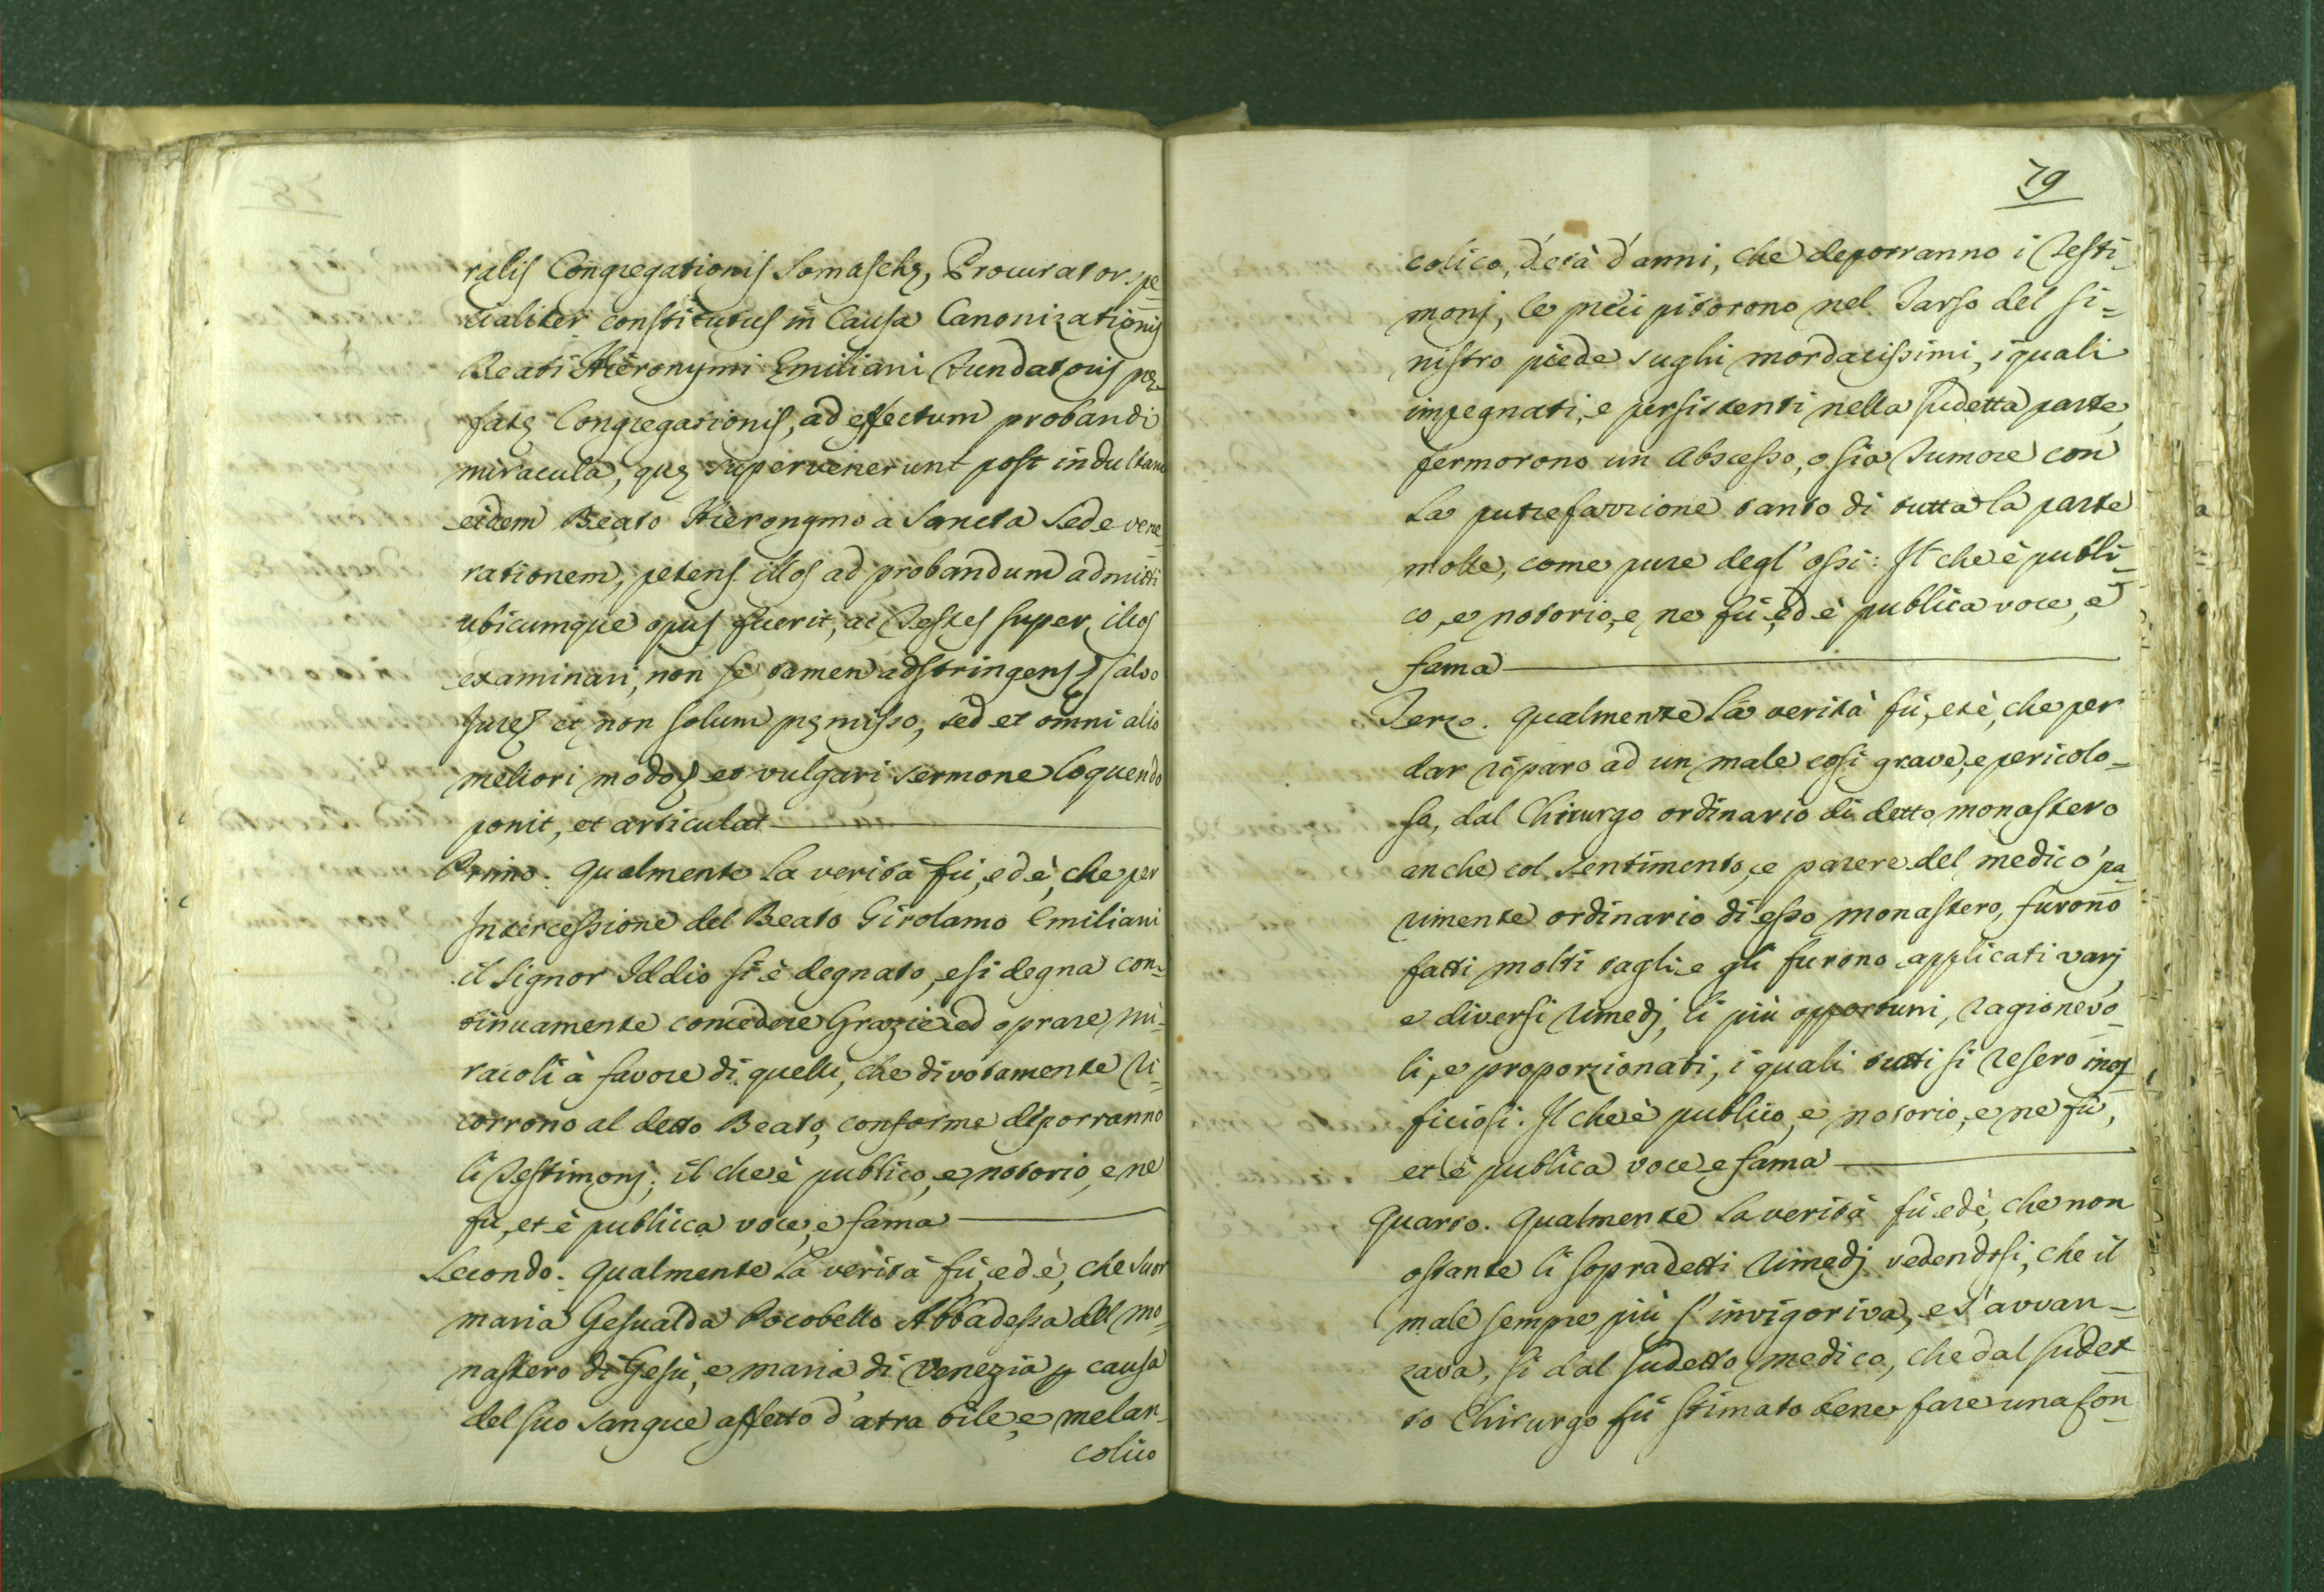 ralis Congregationis Somaschę, Procurator spe=
cialiter constitutus in Causa Canonizationis
Beati Hieronymi Emiliani Fundatoris prę=
fatę Congregationis, ad effectum probandi
miracula, quę supervenerunt post indultam
eidem Beato Hieronymo a Sancta Sede vene=
rationem, petens illos ad probandum admitti
ubicumque opus fuerit, ac Testes super illos
examinari, non se tamen adstringens, salvo
Jure, et non solum pręmisso, sed et omni alio
meliori modo, et vulgari sermone loquendo
ponit, et articulat
Primo. Qualmente la verità fù, ed è, che per
Intercessione del Beato Girolamo Emiliani
il Signor Iddio si è degnato, e si degna con=
tinuamente concedere Grazie ed oprare mi=
racoli à favore di quelli, che divotamente ri=
corrono al detto Beato, conforme deporranno
li Testimonj; il che è publico, e notorio, e ne
fù, et è publica voce, e fama
Secondo. Qualmente la verità fù, ed è, che Suor
Maria Gesualda Pocobello Abbadessa del Mo=
nastero di Gesù, e Maria di Venezia p causa
del suo sangue affetto d'atra bile, e melan=
colico
79
colico, d'età d'anni, che deporranno i Testi=
monj, le precipitorono nel Tarso del si=
nistro piede sughi mordacissimi, i quali
impegnati, e persistenti nella sudetta parte,
fermorono un Abscesso, o sia Tumore con
la putrefazzione tanto di tutta la parte
molle, come pure degl'ossi: Il che è publi=
co, e notorio, e ne fù, ed è publica voce, e
fama
Terzo. Qualmente la verità fù, et è, che per
dar riparo ad un male così grave, e pericolo=
so, dal Chirurgo ordinario di detto monastero
anche col sentimento, e parere del medico pa=
rimente ordinario di esso monastero, furono
fatti molti tagli e gli furono applicati varj,
e diversi rimedj, li più opportuni, ragionevo=
li, e proporzionati, i quali tutti si resero inof=
ficiosi. Il che è publico, e notorio, e ne fù,
et è publica voce e fama
Quarto. Qualmente la verità fù ed è, che non
ostante li sopradetti rimedj vedendosi, che il
male sempre più s'invigoriva, e s'avvan=
zava, si dal sudetto medico, che dal sudet=
to Chirurgo fù stimato bene fare una fon=